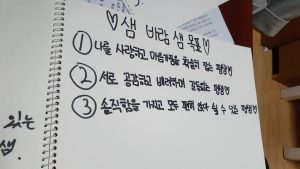 ♡샘 바람 샘 목표♡
① 나를 사랑하고 마음가짐을 확실히 잡는 평량♡
② 서로 공감하고 배려하며 감동있는 평량♡
③ 솔직함을 가지고 모두 편히 쉬다 갈 수 있는 평량♡
있는
샘.